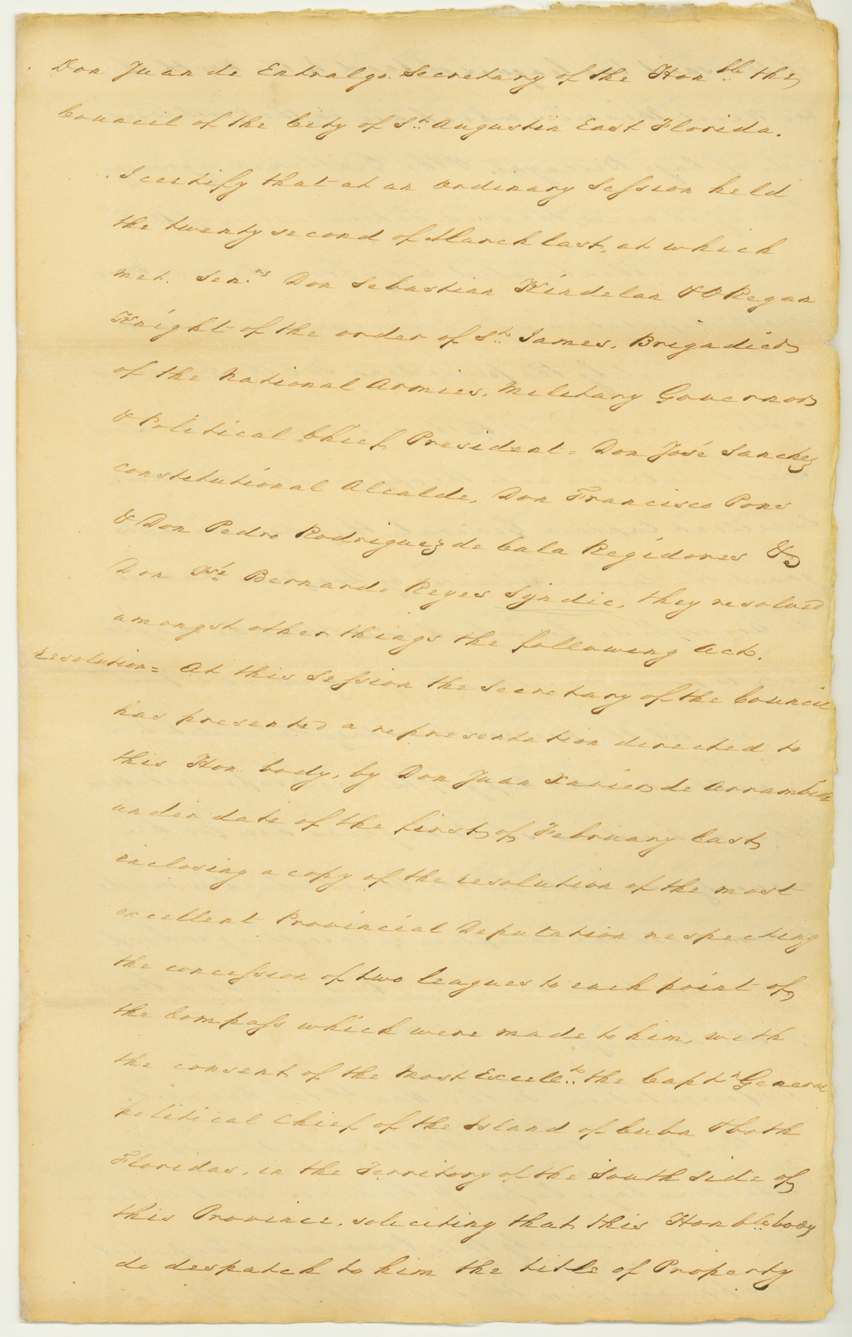 Don Juan de Entralgo Secretary of the Honble the
Council of the City of St. Augustin East Florida.
I certify that at an ordinary Session held
the twenty second of March last, at which
met. Senrs Don Sebastian Kindelan & O Regan
Knight of the order of St. James, Brigadier
of the National Armies, Military Governor
& Political Chief, President = Don José Sanchez
constitutional Alcalde, Don Francisco Pons
& Don Pedro Rodriguez de Cala Regidores &
Don Bernardo Reyes Syndic, they resolved
amongst other things the following Act.
Resolution = At this Session the Secretary of the Council
has presented a representation directed to
this Hon. body, by Don Juan Xavier de Arrambide
under date of the first of February last,
enclosing a copy of the resolution of the most
excellent Provincial Deputation respecting
the concession of two leagues to each point of
the Compass which were made to him, with
the consent of the Most Excellt. the Captn General
political Chief of the Island of Cuba & both
Floridas, in the Territory of the South side of
this Province, soliciting that this Honble body
do despatch to him the title of Property